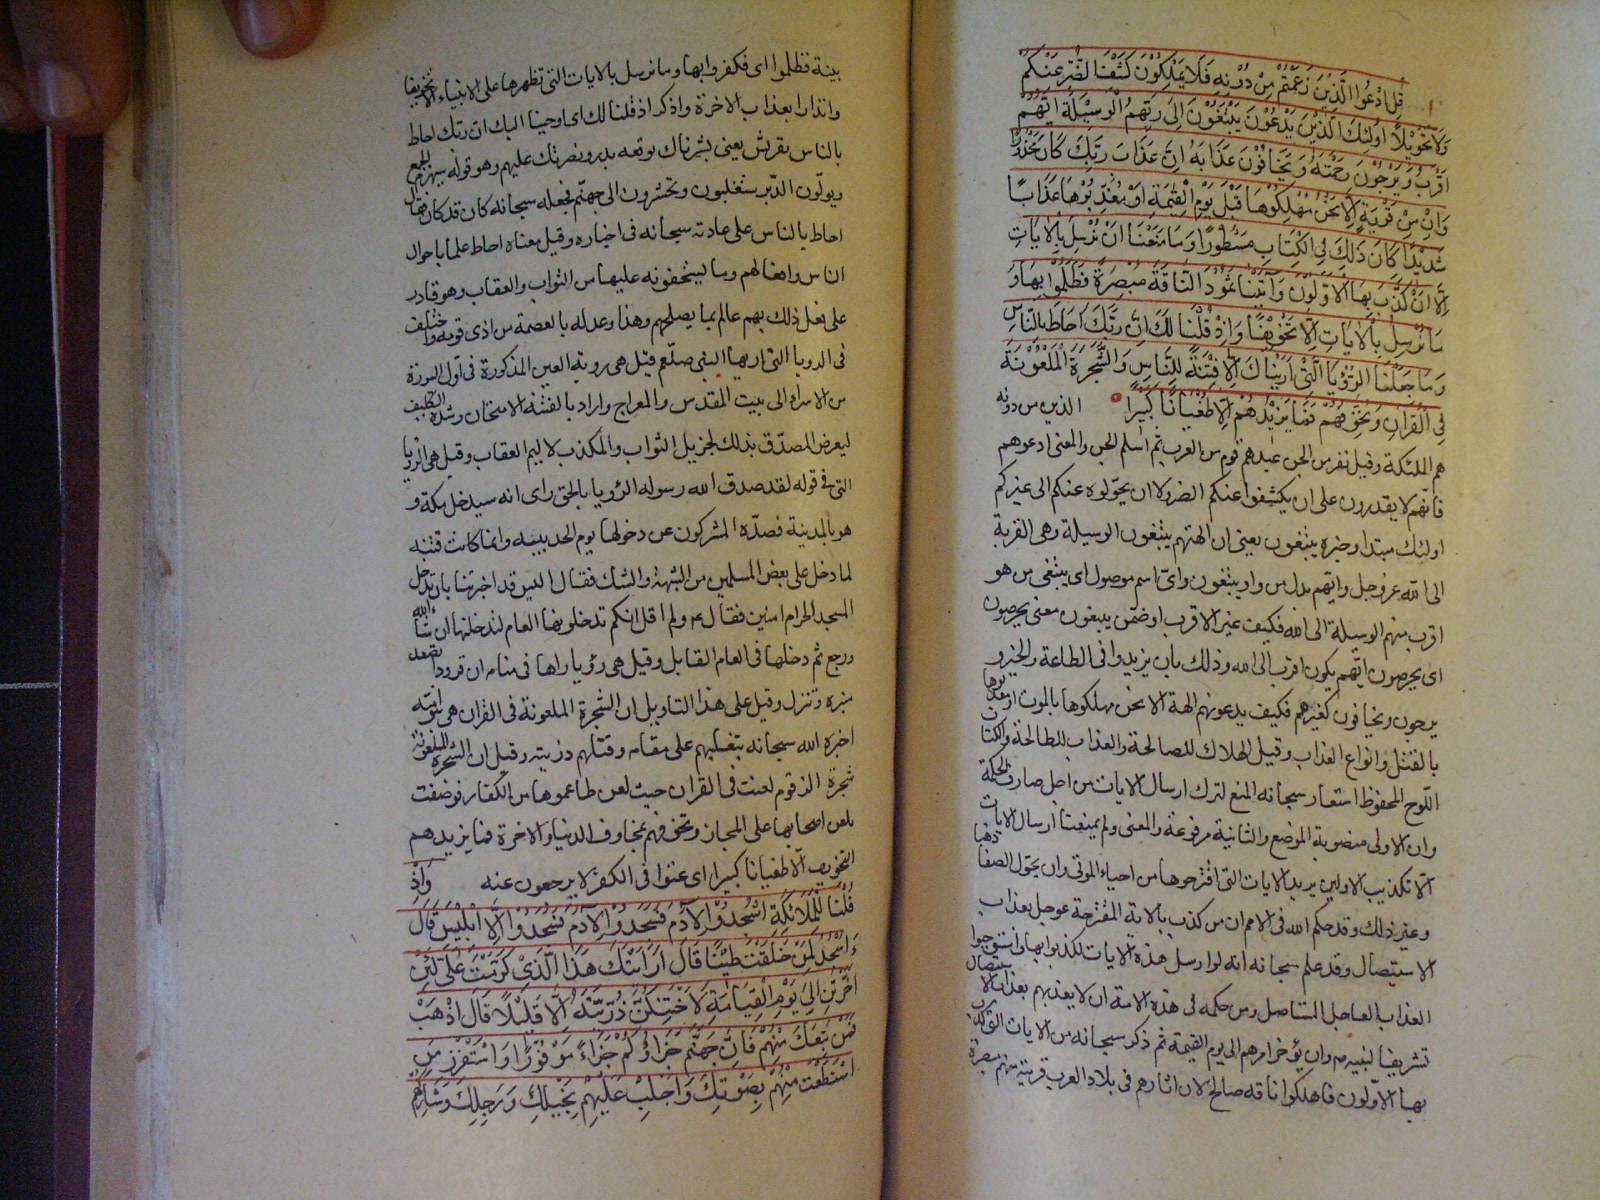 قل ادعوا الذين زعمتم من دونه فلا يملكون كشف الضر عنكم
ولا تحويلا اولئك الذين يدعون يبتغون الى ربهم الوسيلة ايهم
اقرب ويرجون رحمته ويخافون عذابه ان عذاب ربك كان محذورا
وان من قرية الا نحن مهلكوها قبل يوم القيمة او معذبوها عذابا
شديدا كان ذلك في الكتاب مسطورا وما منعنا ان نرسل بالايات
الا ان كذب بها الاولون وآتينا ثمود الناقة مبصرة فظلموا بها و
ما نرسل بالايات الا تخويفا واذ قلنا لك ان ربك احاط بالناس
وما جعلنا الرؤيا التي اريناك الا فتنة للناس والشجرة الملعونة
في القران ونخوفهم فما يزيدهم الا طغيانا كبيرا الذين من دونه
هم الملئكة وقيل نفر من الجن عبدهم قوم من العرب ثم اسلم الجن والمعنى ادعوهم
فانهم لا يقدرون على ان يكشفوا عنكم الضر ولا ان يحولوه عنكم الى غيركم
اولئك مبتدا وخبره يبتغون يعني ان الهتهم يبتغون الوسيلة وهي القربة
الى الله عز وجل وايهم بدل من واو يبتغون واي اسم موصول اى يبتغى من هو
اقرب منهم الوسيلة الى الله فكيف غير الاقرب او ضمن يبتغون معنى يحرصون
اى يحرصون ايهم يكون اقرب الى الله وذلك بان يزيدوا فى الطاعة والخير و
يرجون ويخافون كغيرهم فكيف يدعونهم الهة الا نحن مهلكوها بالموت او معذبوها
بالقتل وانواع العذاب وقيل الهلاك للصالحة والعذاب للطالحة والكتاب
اللوح المحفوظ استعار سبحانه المنع لترك ارسال الايات من اجل صارف الحكمة
وان الاولى منصوبة الموضع والثانية مرفوعة والمعنى ولم يمنعنا ارسال الايات
الا تكذيب الاولين يريد الايات التى اقترحوها من احياء الموتى وان يحول الصفا ذهبا
وغير ذلك وقد حكم الله فى الامم ان من كذب بالاية المقترحة عوجل بعذاب
الاستيصال وقد علم سبحانه انه لو ارسل هذه الايات لكذبوا بها واستوجبوا
العذاب العاجل المستاصل ومن حكمه فى هذه الامة ان لا يعذبهم بعذاب الاستيصال
تشريفا لنبيه ص وان يؤخر امرهم الى يوم القيمة ثم ذكر سبحانه من الايات التى كذب
بها الاولون فاهلكوا ناقة صالح لان اثارهم فى بلاد العرب قريبة منهم مبصرة
بينة فظلموا اى فكفروا بها وما نرسل بالايات التى تظهرها على الانبياء الا تخويفا
وانذارا بعذاب الاخرة واذكر اذ قلنا لك اى اوحينا اليك ان ربك احاط
بالناس بقريش يعنى بشرناك بوقعه بدر وبنصرتك عليهم وهو قوله سيهزم الجمع
ويولون الدبر ستغلبون وتحشرون الى جهنم فجعله سبحانه كان قد كان فقال
احاط بالناس على عادته سبحانه فى اخباره وقيل معناه احاط علما باحوال
الناس وافعالهم وما يستحقونه عليها من الثواب والعقاب وهو قادر
على فعل ذلك بهم عالم بما يصلحهم وهذا وعد له بالعصمة من اذى قومه واختلف
فى الرويا التى اريها النبى صلعم فقيل هى روية العين المذكورة فى اول السورة
من الاسراء الى بيت المقدس والمعراج واراد بالفتنة الامتحان وشدة التكليف
ليعرض المصدق بذلك لجزيل الثواب والمكذب لاليم العقاب وقيل هى الرويا
التى فى قوله لقد صدق الله رسوله الرؤيا بالحق راى انه سيدخل مكة و
هو بالمدينة فصده المشركون عن دخولها يوم الحديبية وانما كانت فتنة
لما دخل على بعض المسلمين من الشبهة والشك فقال اليس قد اخبرتنا بان ندخل
المسجد الحرام امنين فقال ع ولم اقل انكم تدخلونها العام لتدخلنها ان شاء الله
ورجع ثم دخلها فى العام القابل وقيل هى رؤيا راها فى منامه ان قرودا تصعد
منبره وتنزل وقيل على هذا التاويل ان الشجرة الملعونة فى القران هى بنو امية
اخبره الله سبحانه بتغلبهم على مقامه وقتلهم ذريته وقيل ان الشجرة الملعونة
شجرة الزقوم لعنت فى القران حيث لعن طاعموها من الكفار فوصفت
بلعن اصحابها على المجاز ونخوفهم بمخاوف الدنيا والاخرة فما يزيدهم
التخويف الا طغيانا كبيرا اى عتوا فى الكفر لا يرجعون عنه واذ
قلنا للملائكة اسجدوا لادم فسجدوا لادم فسجدوا الا ابليس قال
ءاسجد لمن خلقت طينا قال ارايتك هذا الذي كرمت علي لئن
اخرتن الى يوم القيامة لاحتنكن ذريته الا قليلا قال اذهب
فمن تبعك منهم فان جهنم جزاؤكم جزاء موفورا واستفزز من
استطعت منهم بصوتك واجلب عليهم بخيلك ورجلك وشاركهم